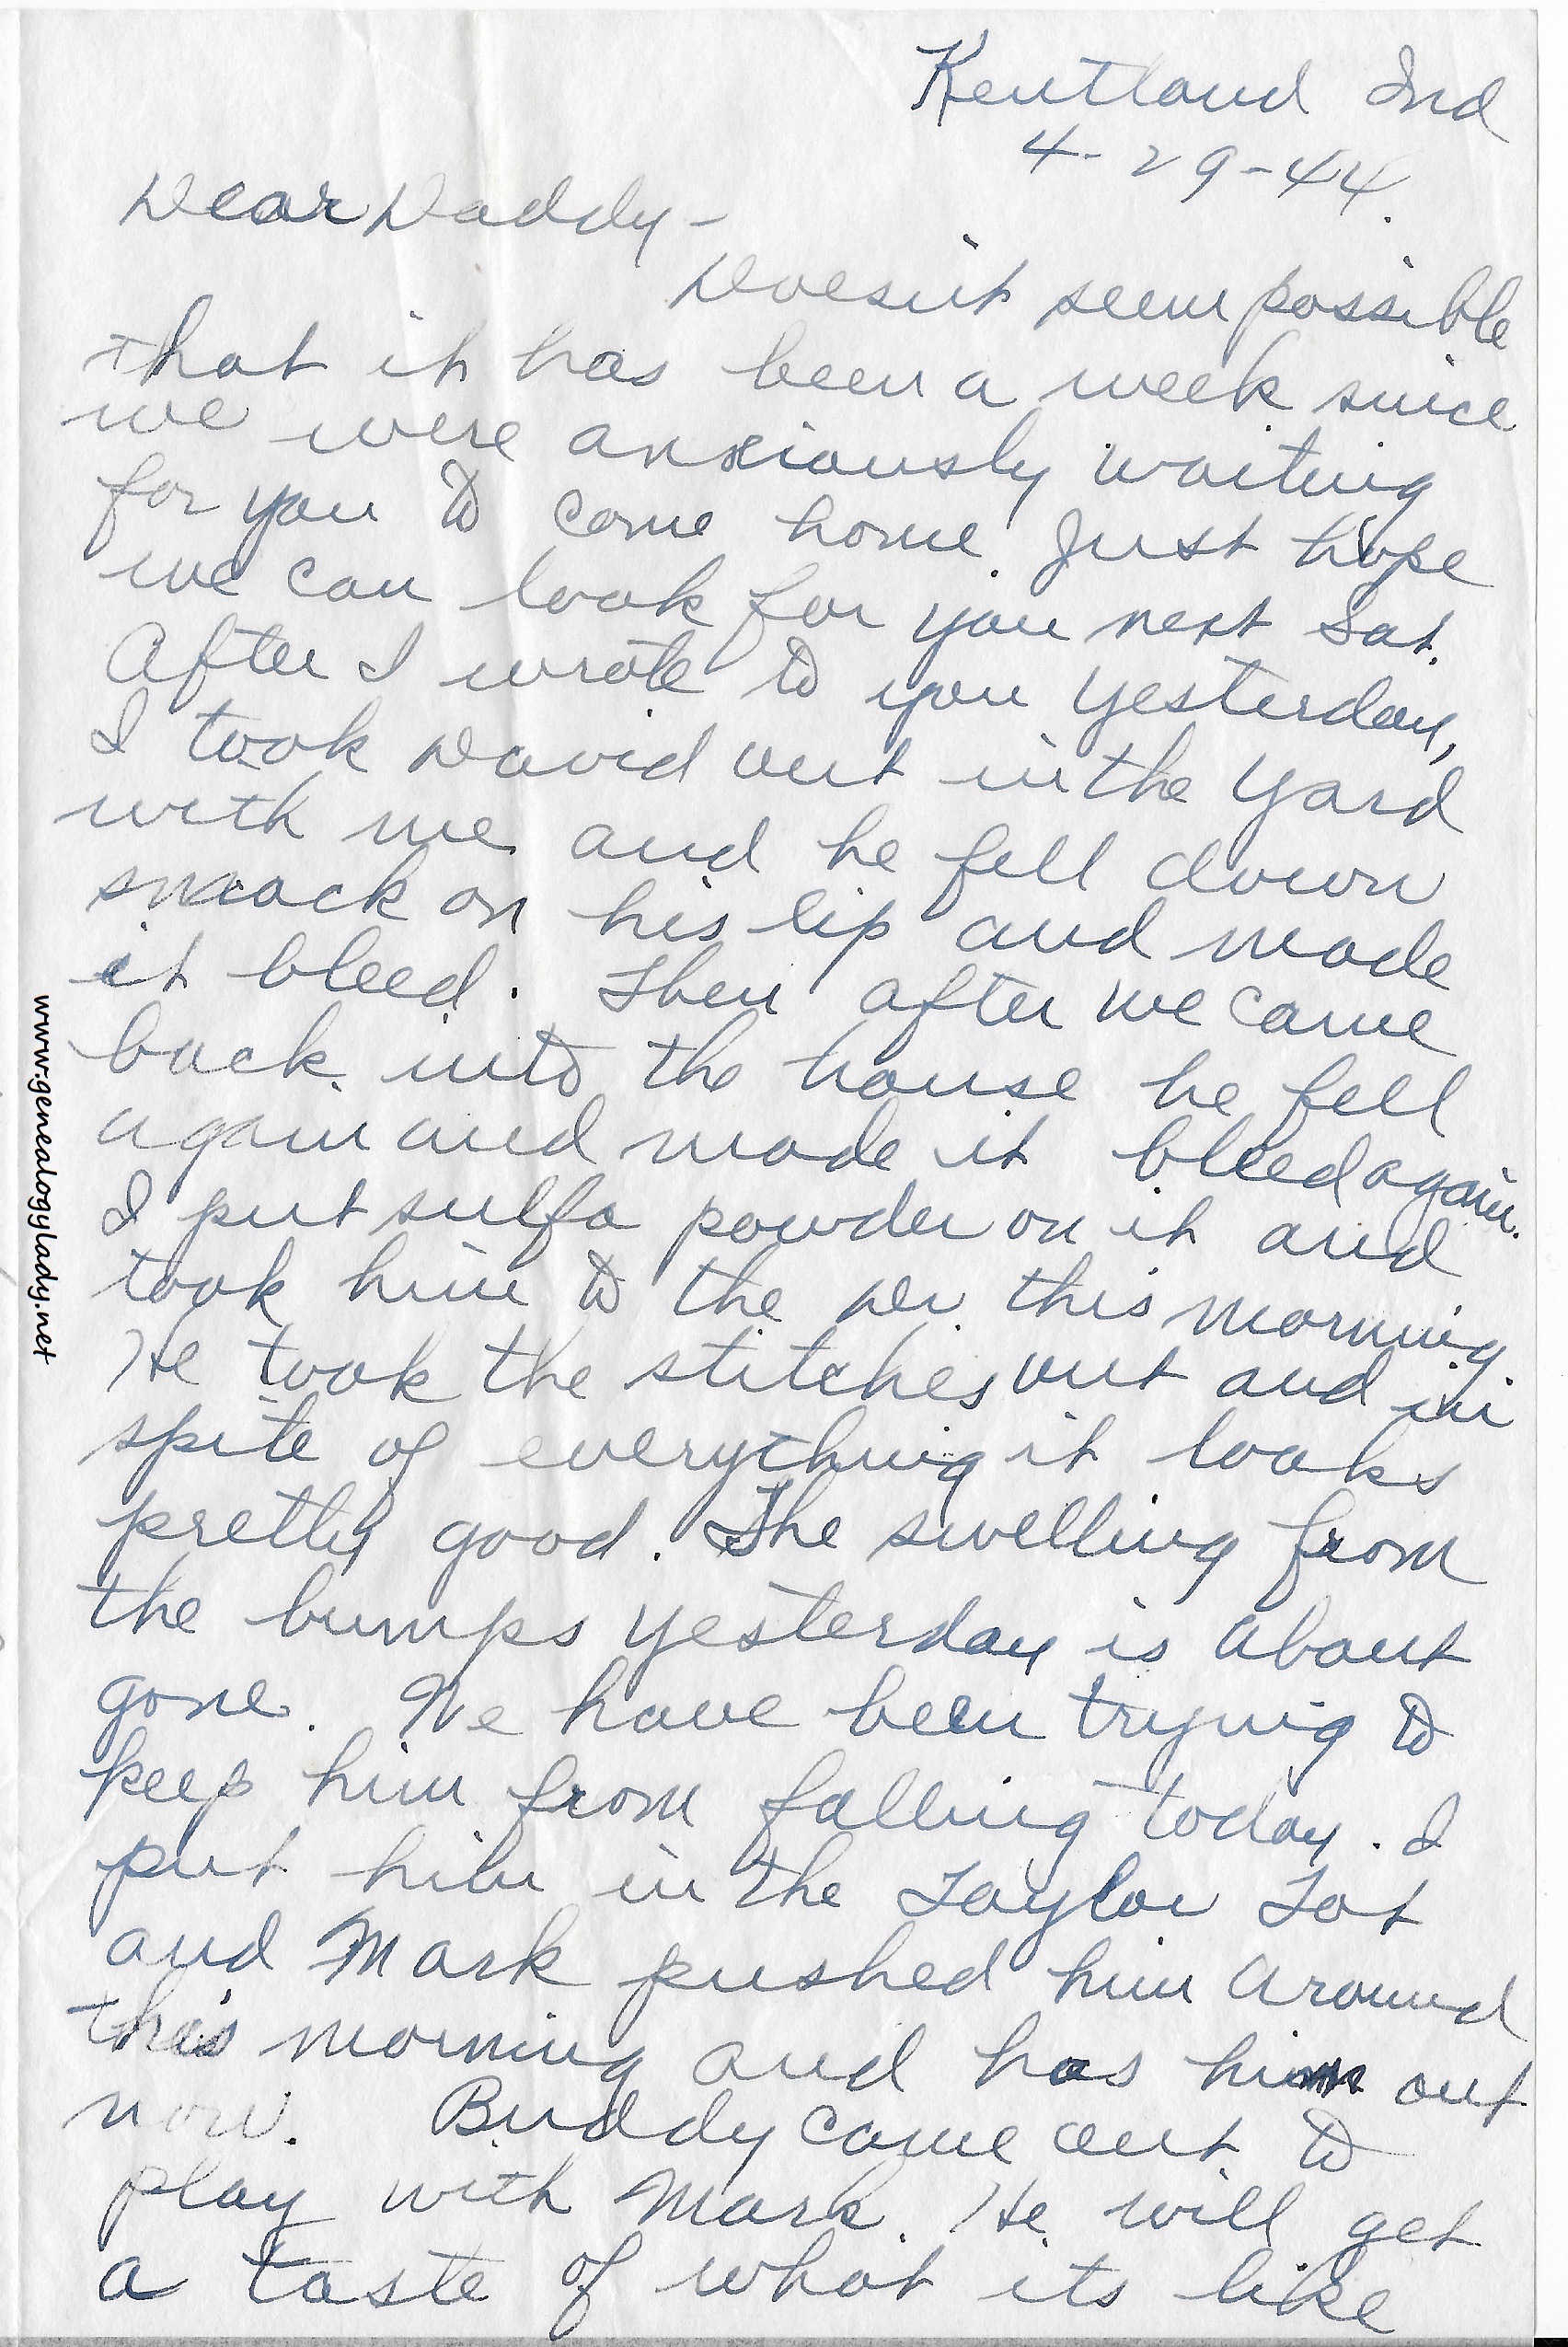 Kentland Ind
4-29-44.
Dear Daddy-
Doesn't seem possible
that it has been a week since
we were anxiously waiting
for you to come home. Just hope
we can look for you next Sat.
After I wrote to you yesterday,
I took David out in the yard
with me and he fell down
smack on his lip and made
it bleed. Then after we came
back into the house he fell
again and made it bleed again.
I put sulfa powder on it and
took him to the Dr. this morning.
He took the stitches out and in
spite of everything it looks
pretty good. The swelling from
the bumps yesterday is about
gone. We have been trying to
keep him from falling today. I
put him in the Taylor Tot
and Mark pushed him around
this morning and has him out
now. Buddy came out to
play with Mark. He will get
a taste of what its like
www.genealogylady.net